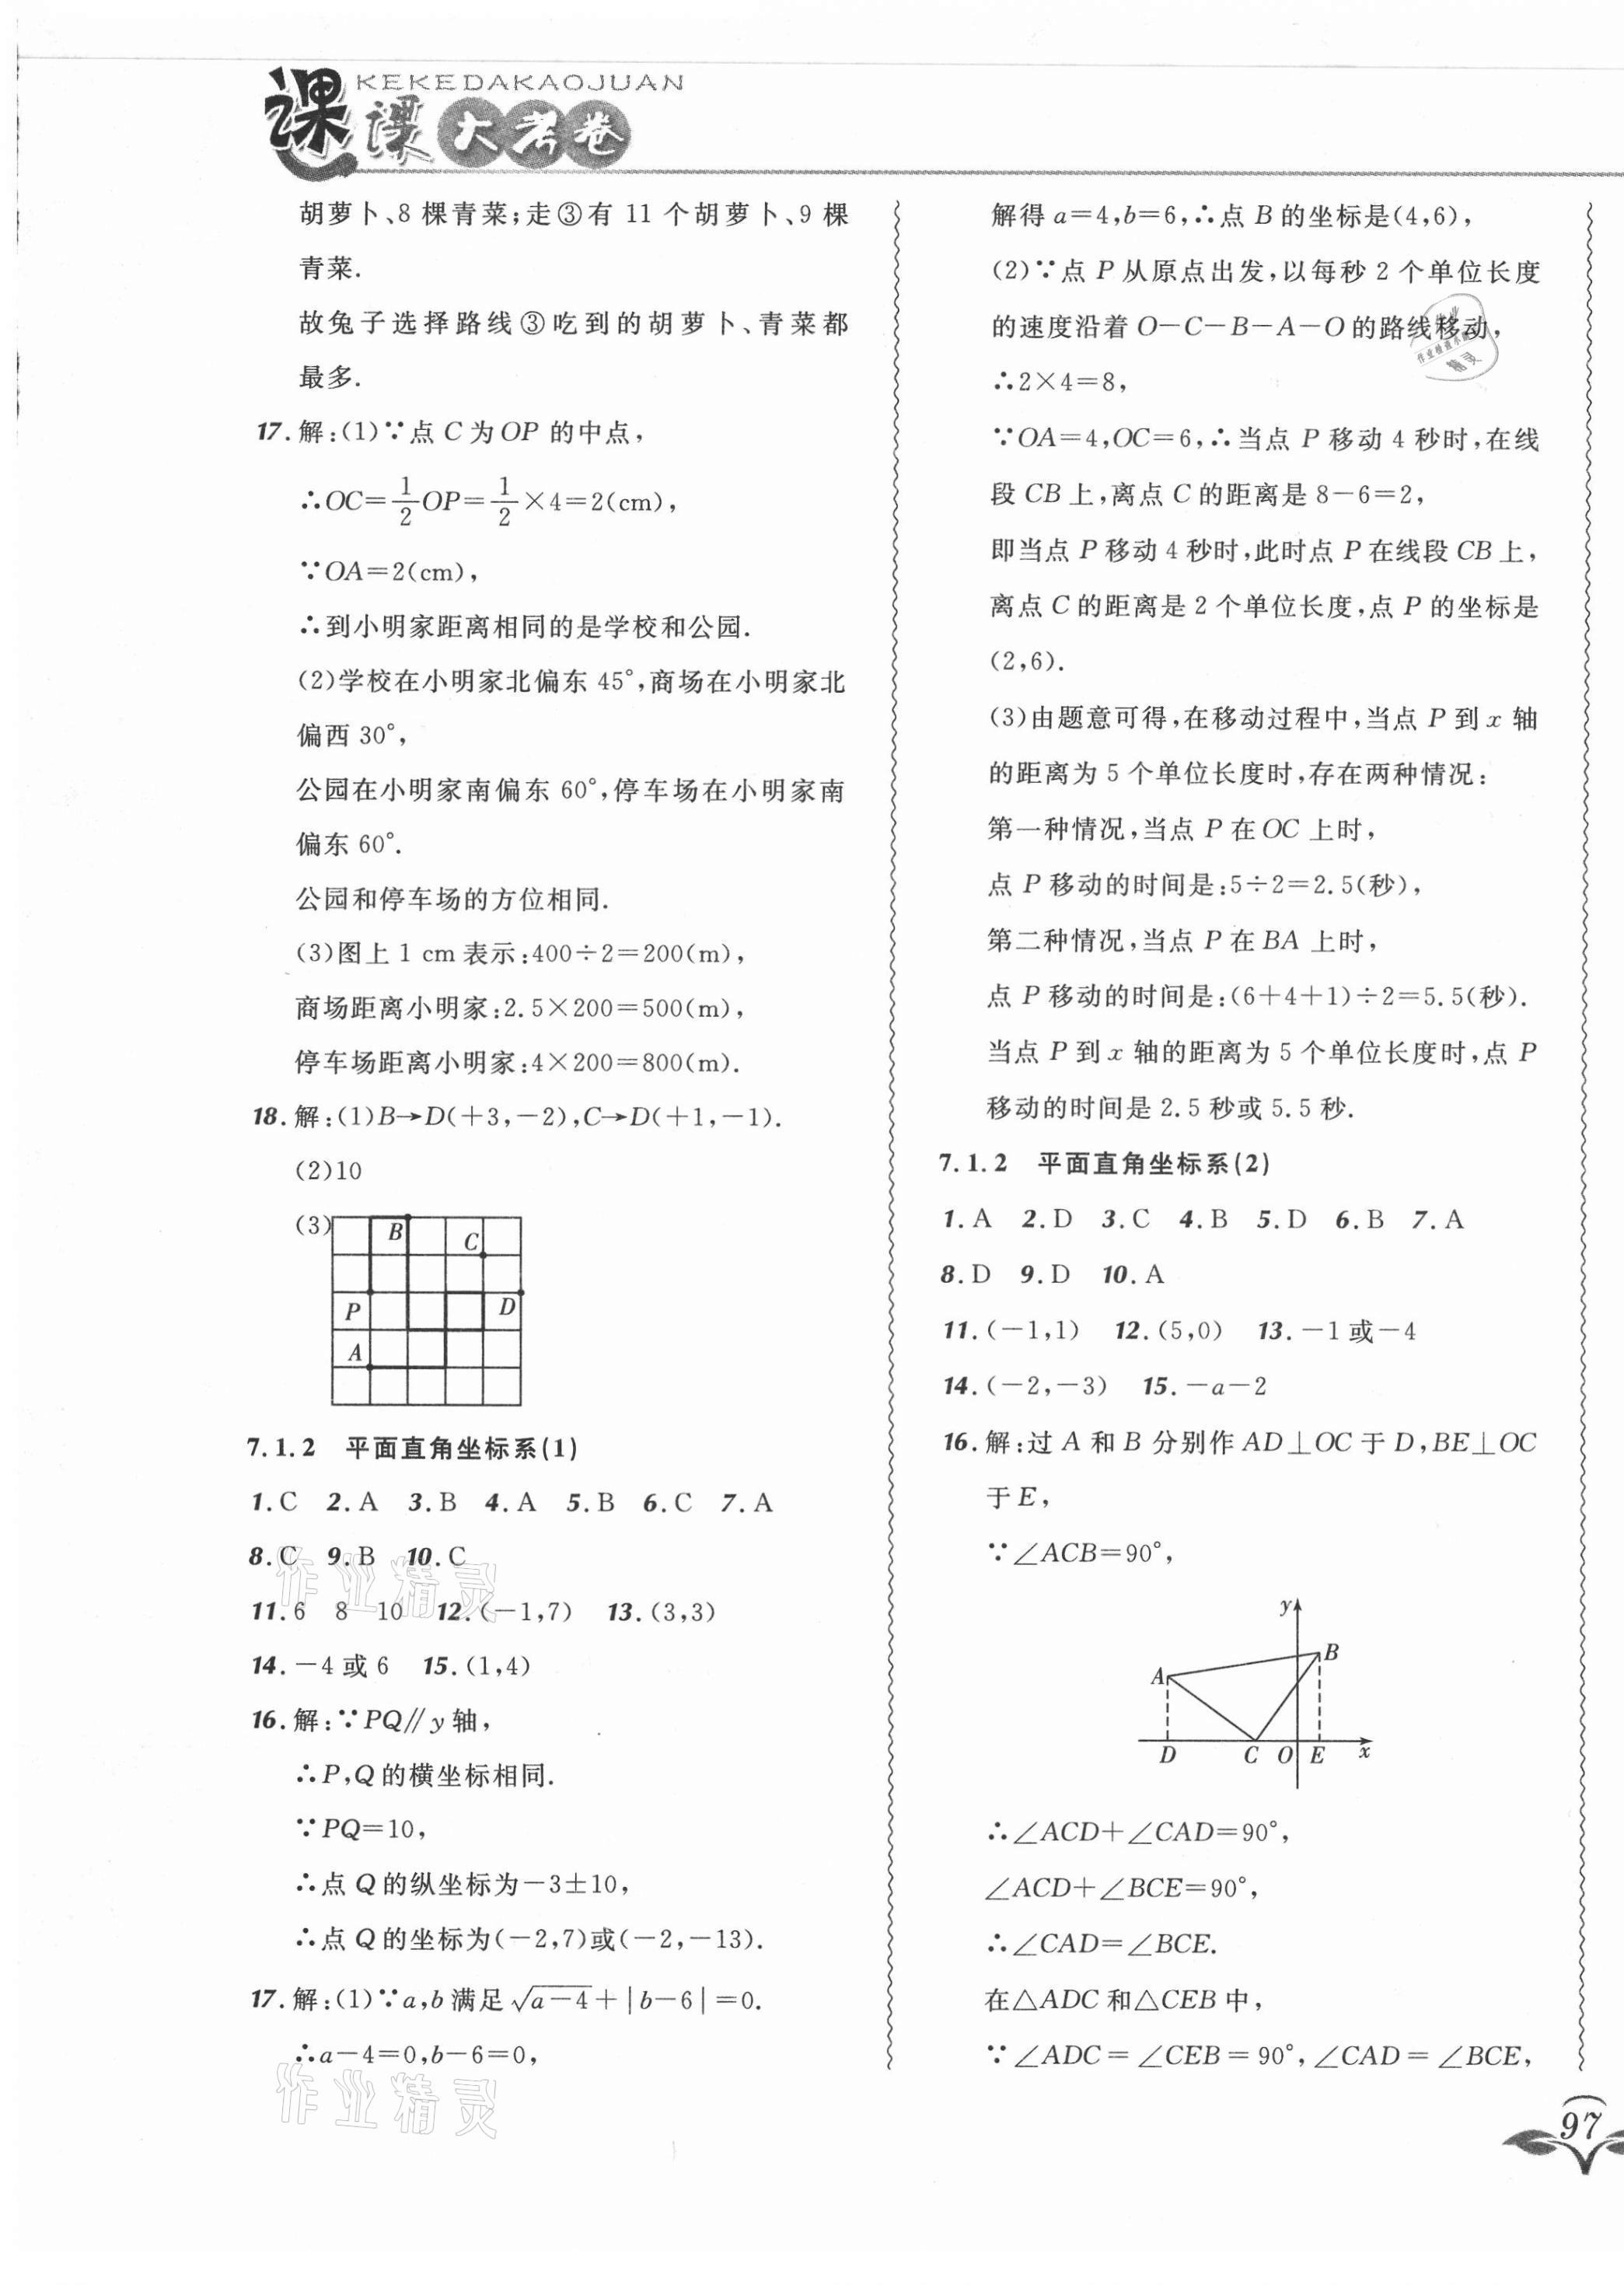 KEKEDAKAOJUAN
课课大考卷
胡萝卜、8 棵青菜;走③有 11 个胡萝卜、9 棵
青菜.
故兔子选择路线③吃到的胡萝卜、青菜都
最多.
17. 解:(1)∵点 C 为 OP 的中点,
∴OC=1/2OP=1/2×4=2(cm),
∵OA=2(cm),
∴到小明家距离相同的是学校和公园.
(2)学校在小明家北偏东 45°,商场在小明家北
偏西 30°,
公园在小明家南偏东 60°,停车场在小明家南
偏东 60°.
公园和停车场的方位相同.
(3)图上 1 cm 表示:400÷2=200(m),
商场距离小明家:2.5×200=500(m),
停车场距离小明家:4×200=800(m).
18. 解:(1)B→D(+3,-2),C→D(+1,-1).
(2)10
(3)
B
C
P
D
A
7.1.2 平面直角坐标系(1)
1. C 2. A 3. B 4. A 5. B 6. C 7. A
8. C 9. B 10. C
11. 6 8 10 12. (-1,7) 13. (3,3)
14. -4 或 6 15. (1,4)
16. 解:∵PQ∥y 轴,
∴P,Q 的横坐标相同.
∵PQ=10,
∴点 Q 的纵坐标为-3±10,
∴点 Q 的坐标为(-2,7)或(-2,-13).
17. 解:(1)∵a,b 满足 √(a-4)+|b-6|=0.
∴a-4=0,b-6=0,
作业精灵
作业精灵
解得 a=4,b=6,∴点 B 的坐标是(4,6),
(2)∵点 P 从原点出发,以每秒 2 个单位长度
的速度沿着 O-C-B-A-O 的路线移动,
∴2×4=8,
∵OA=4,OC=6,∴当点 P 移动 4 秒时,在线
段 CB 上,离点 C 的距离是 8-6=2,
即当点 P 移动 4 秒时,此时点 P 在线段 CB 上,
离点 C 的距离是 2 个单位长度,点 P 的坐标是
(2,6).
(3)由题意可得,在移动过程中,当点 P 到 x 轴
的距离为 5 个单位长度时,存在两种情况:
第一种情况,当点 P 在 OC 上时,
点 P 移动的时间是:5÷2=2.5(秒),
第二种情况,当点 P 在 BA 上时,
点 P 移动的时间是:(6+4+1)÷2=5.5(秒).
当点 P 到 x 轴的距离为 5 个单位长度时,点 P
移动的时间是 2.5 秒或 5.5 秒.
7.1.2 平面直角坐标系(2)
1. A 2. D 3. C 4. B 5. D 6. B 7. A
8. D 9. D 10. A
11. (-1,1) 12. (5,0) 13. -1 或-4
14. (-2,-3) 15. -a-2
16. 解:过 A 和 B 分别作 AD⊥OC 于 D,BE⊥OC
于 E,
∵∠ACB=90°,
y
B
A
D C O E x
∴∠ACD+∠CAD=90°,
∠ACD+∠BCE=90°,
∴∠CAD=∠BCE.
在△ADC 和△CEB 中,
∵∠ADC=∠CEB=90°,∠CAD=∠BCE,
97